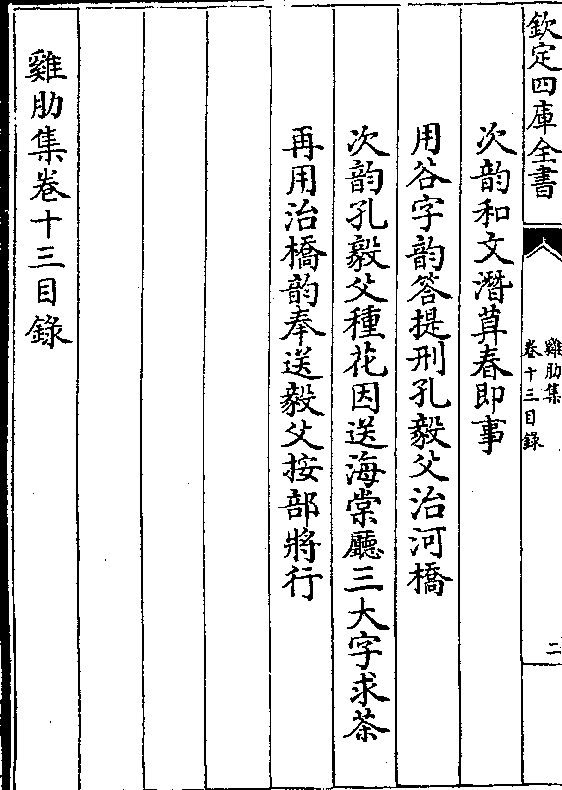 欽定四庫全書
雞肋集
卷十三目錄
二
次韵和文潛草春即事
用谷字韵答提刑孔毅父治河橋
次韵孔毅父種花因送海棠廳三大字求茶
再用治橋韵奉送毅父按部將行
雞肋集卷十三目錄